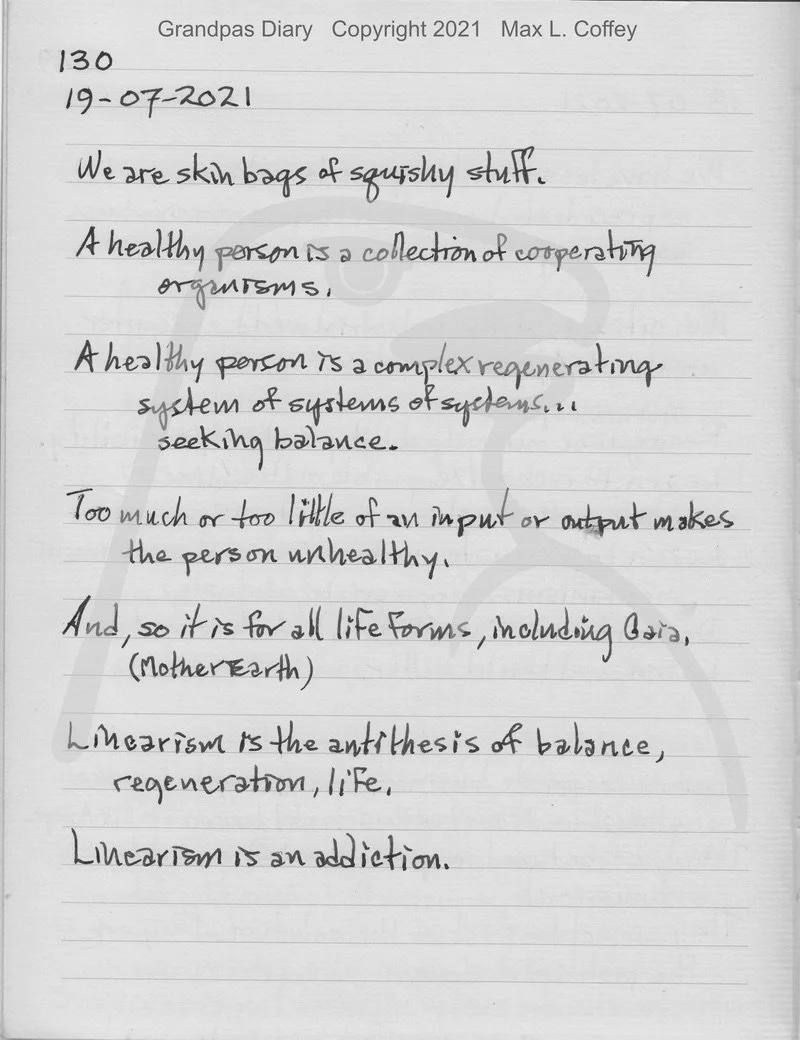 Grandpas Diary Copyright 2021 Max L. Coffey
130
19-07-2021
We are skin bags of squishy stuff.
A healthy person is a collection of cooperating
organisms.
A healthy person is a complex regenerating
system of systems of systems...
seeking balance.
Too much or too little of an input or output makes
the person unhealthy.
And, so it is for all life forms, including Gaia.
(Mother Earth)
Linearism is the antithesis of balance,
regeneration, life.
Linearism is an addiction.